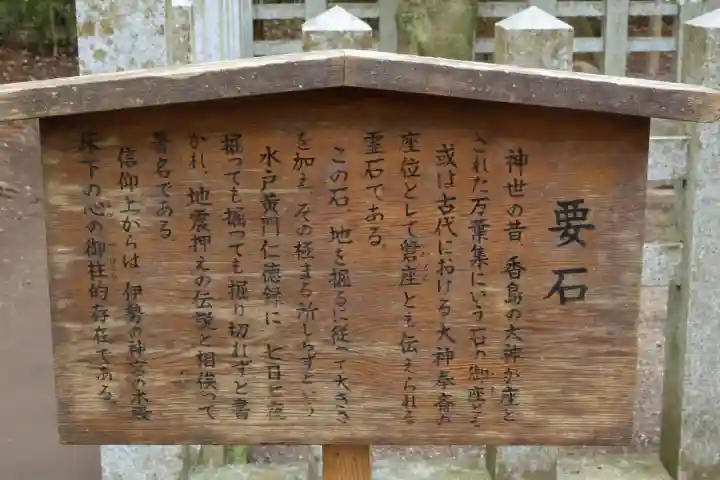 要石
神世の昔、香島の大神が座と
された万葉集にいう石の御座とも
或は古代における大神奉斎の
座位として磐座とも伝えられる
霊石である。
この石、地を掘るに従って大きさ
を加え、その極まる所しらずという
水戸黄門仁徳録に、七日七夜
掘っても掘っても掘り切れずと書
かれ、地震押えの伝説と相俟って
著名である。
信仰上からは、伊勢の神宮の本殿
床下の心の御柱的存在である。